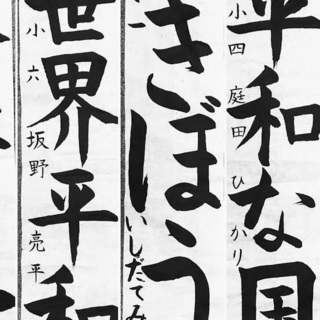 平和な国
小四 庭田 ひかり
きぼう
いしだてみ
世界平和
小六 坂野 亮平